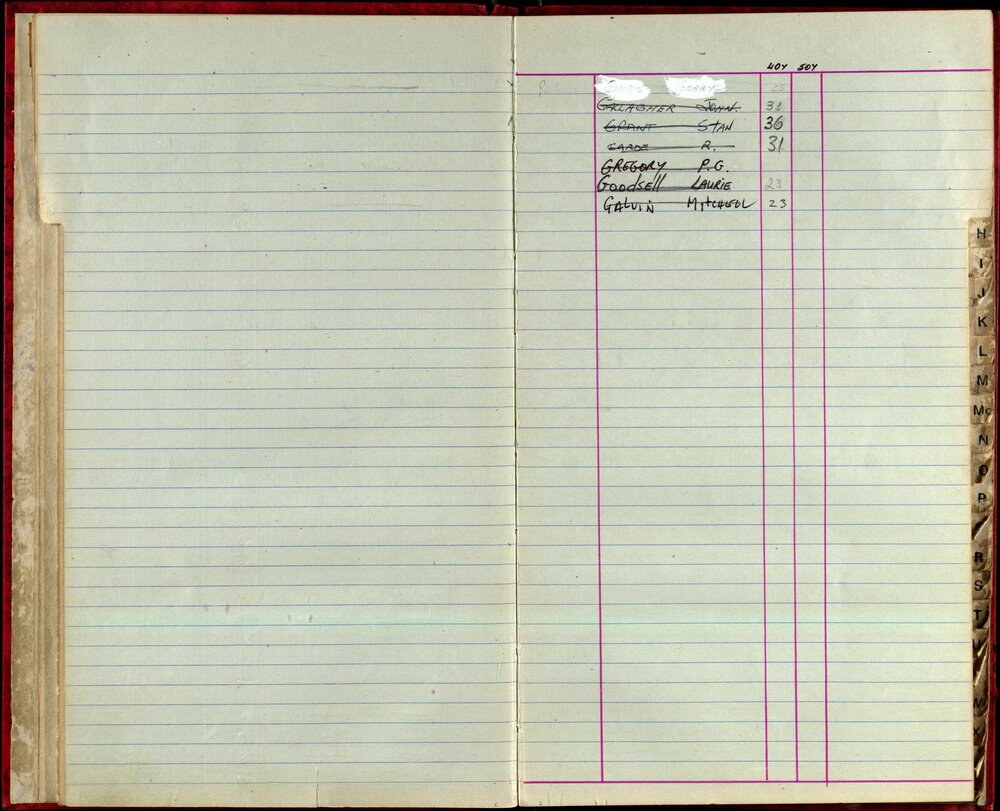 40Y 50Y
GALLAGHER JOHN. 31
GRANT STAN 36
GARDE R. 31
GREGORY P.G.
GOODSELL LAURIE 23
GALVIN MITCHELL 23
H
I
J
K
L
M
Mc
N
O
P
R
S
T